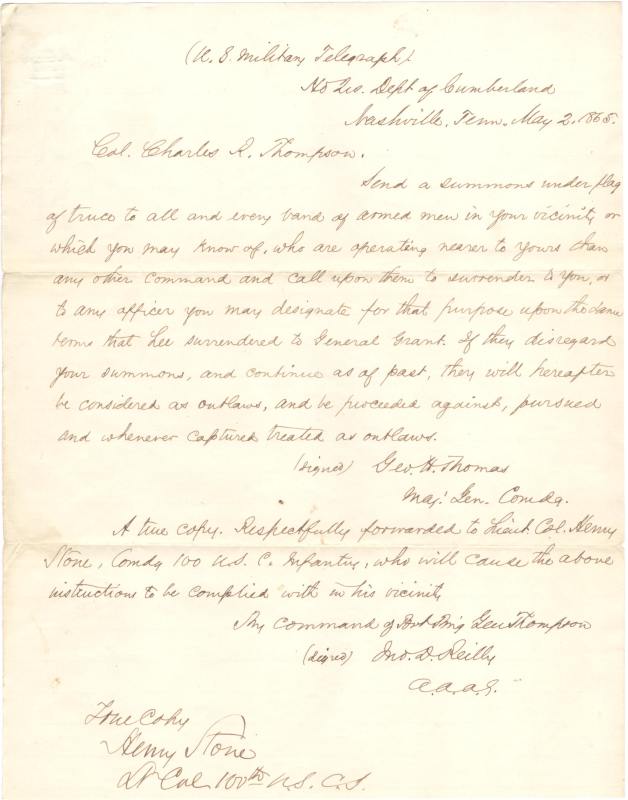 (U. S. Military Telegraph)
Hd Qrs. Dept of Cumberland
Nashville, Tenn. May 2. 1865.
Col. Charles R. Thompson.
Send a summons under flag
of truce to all and every band of armed men in your vicinity or
which you may know of, who are operating nearer to yours than
any other command and call upon them to surrender to you, or
to any officer you may designate for that purpose upon the same
terms that Lee surrendered to General Grant. If they disregard
your summons, and continue as of past, they will hereafter
be considered as outlaws, and be proceeded against, pursued
and whenever captured treated as outlaws.
(signed) Geo. H. Thomas
Maj. Gen. Comdg.
A true copy. Respectfully forwarded to Lieut. Col. Henry
Stone, Comdg 100 U.S. C. Infantry, who will cause the above
instructions to be complied with in his vicinity
By command of Bvt Brig Gen Thompson
(signed) Jno. D. Reilly
A.A.A.G.
True Copy
Henry Stone
Lt Col 100th U.S.C.I.